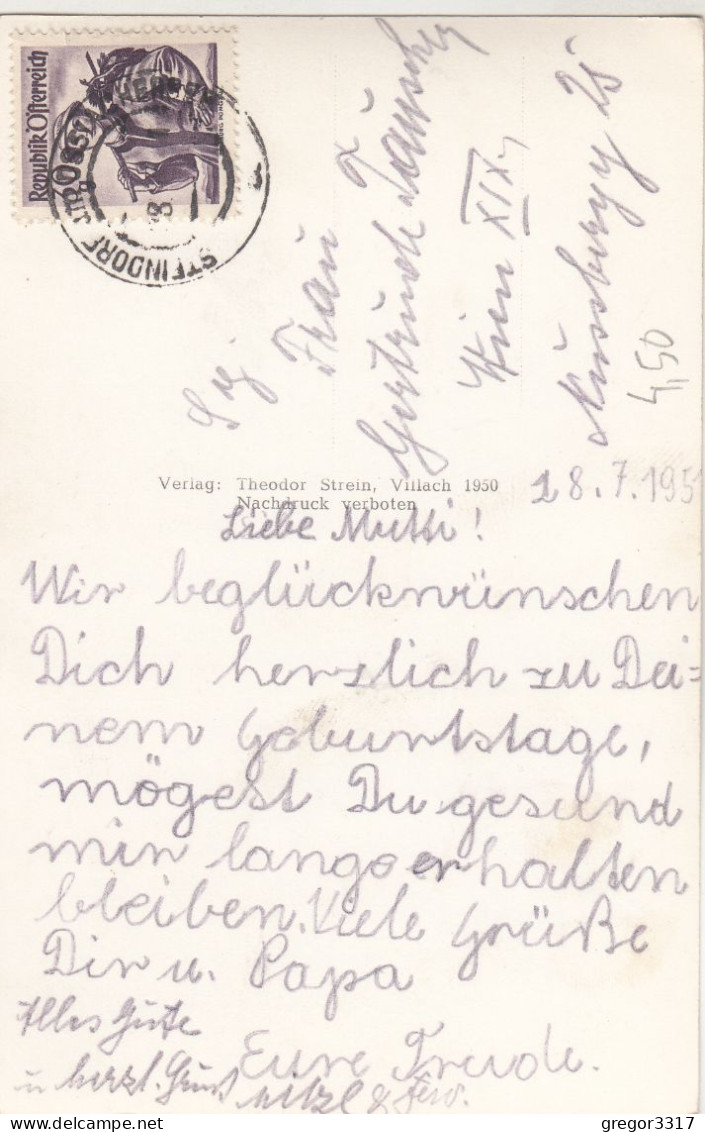 Republik Österreich
STEINDORF
Frau
Gertrude Tauscher
Wien XIX.
Nussbergg 25
4,50
Verlag: Theodor Strein, Villach 1950
Nachdruck verboten
18.7.1951
Liebe Mutti!
Wir beglückwünschen
Dich herzlich zu Dei=
nem Geburtstage,
mögest Du gesund
mir lange erhalten
bleiben. Viele Grüße
Dir u. Papa
Eure Trude.
Alles Gute
u herzl. Gruß
gregor3317